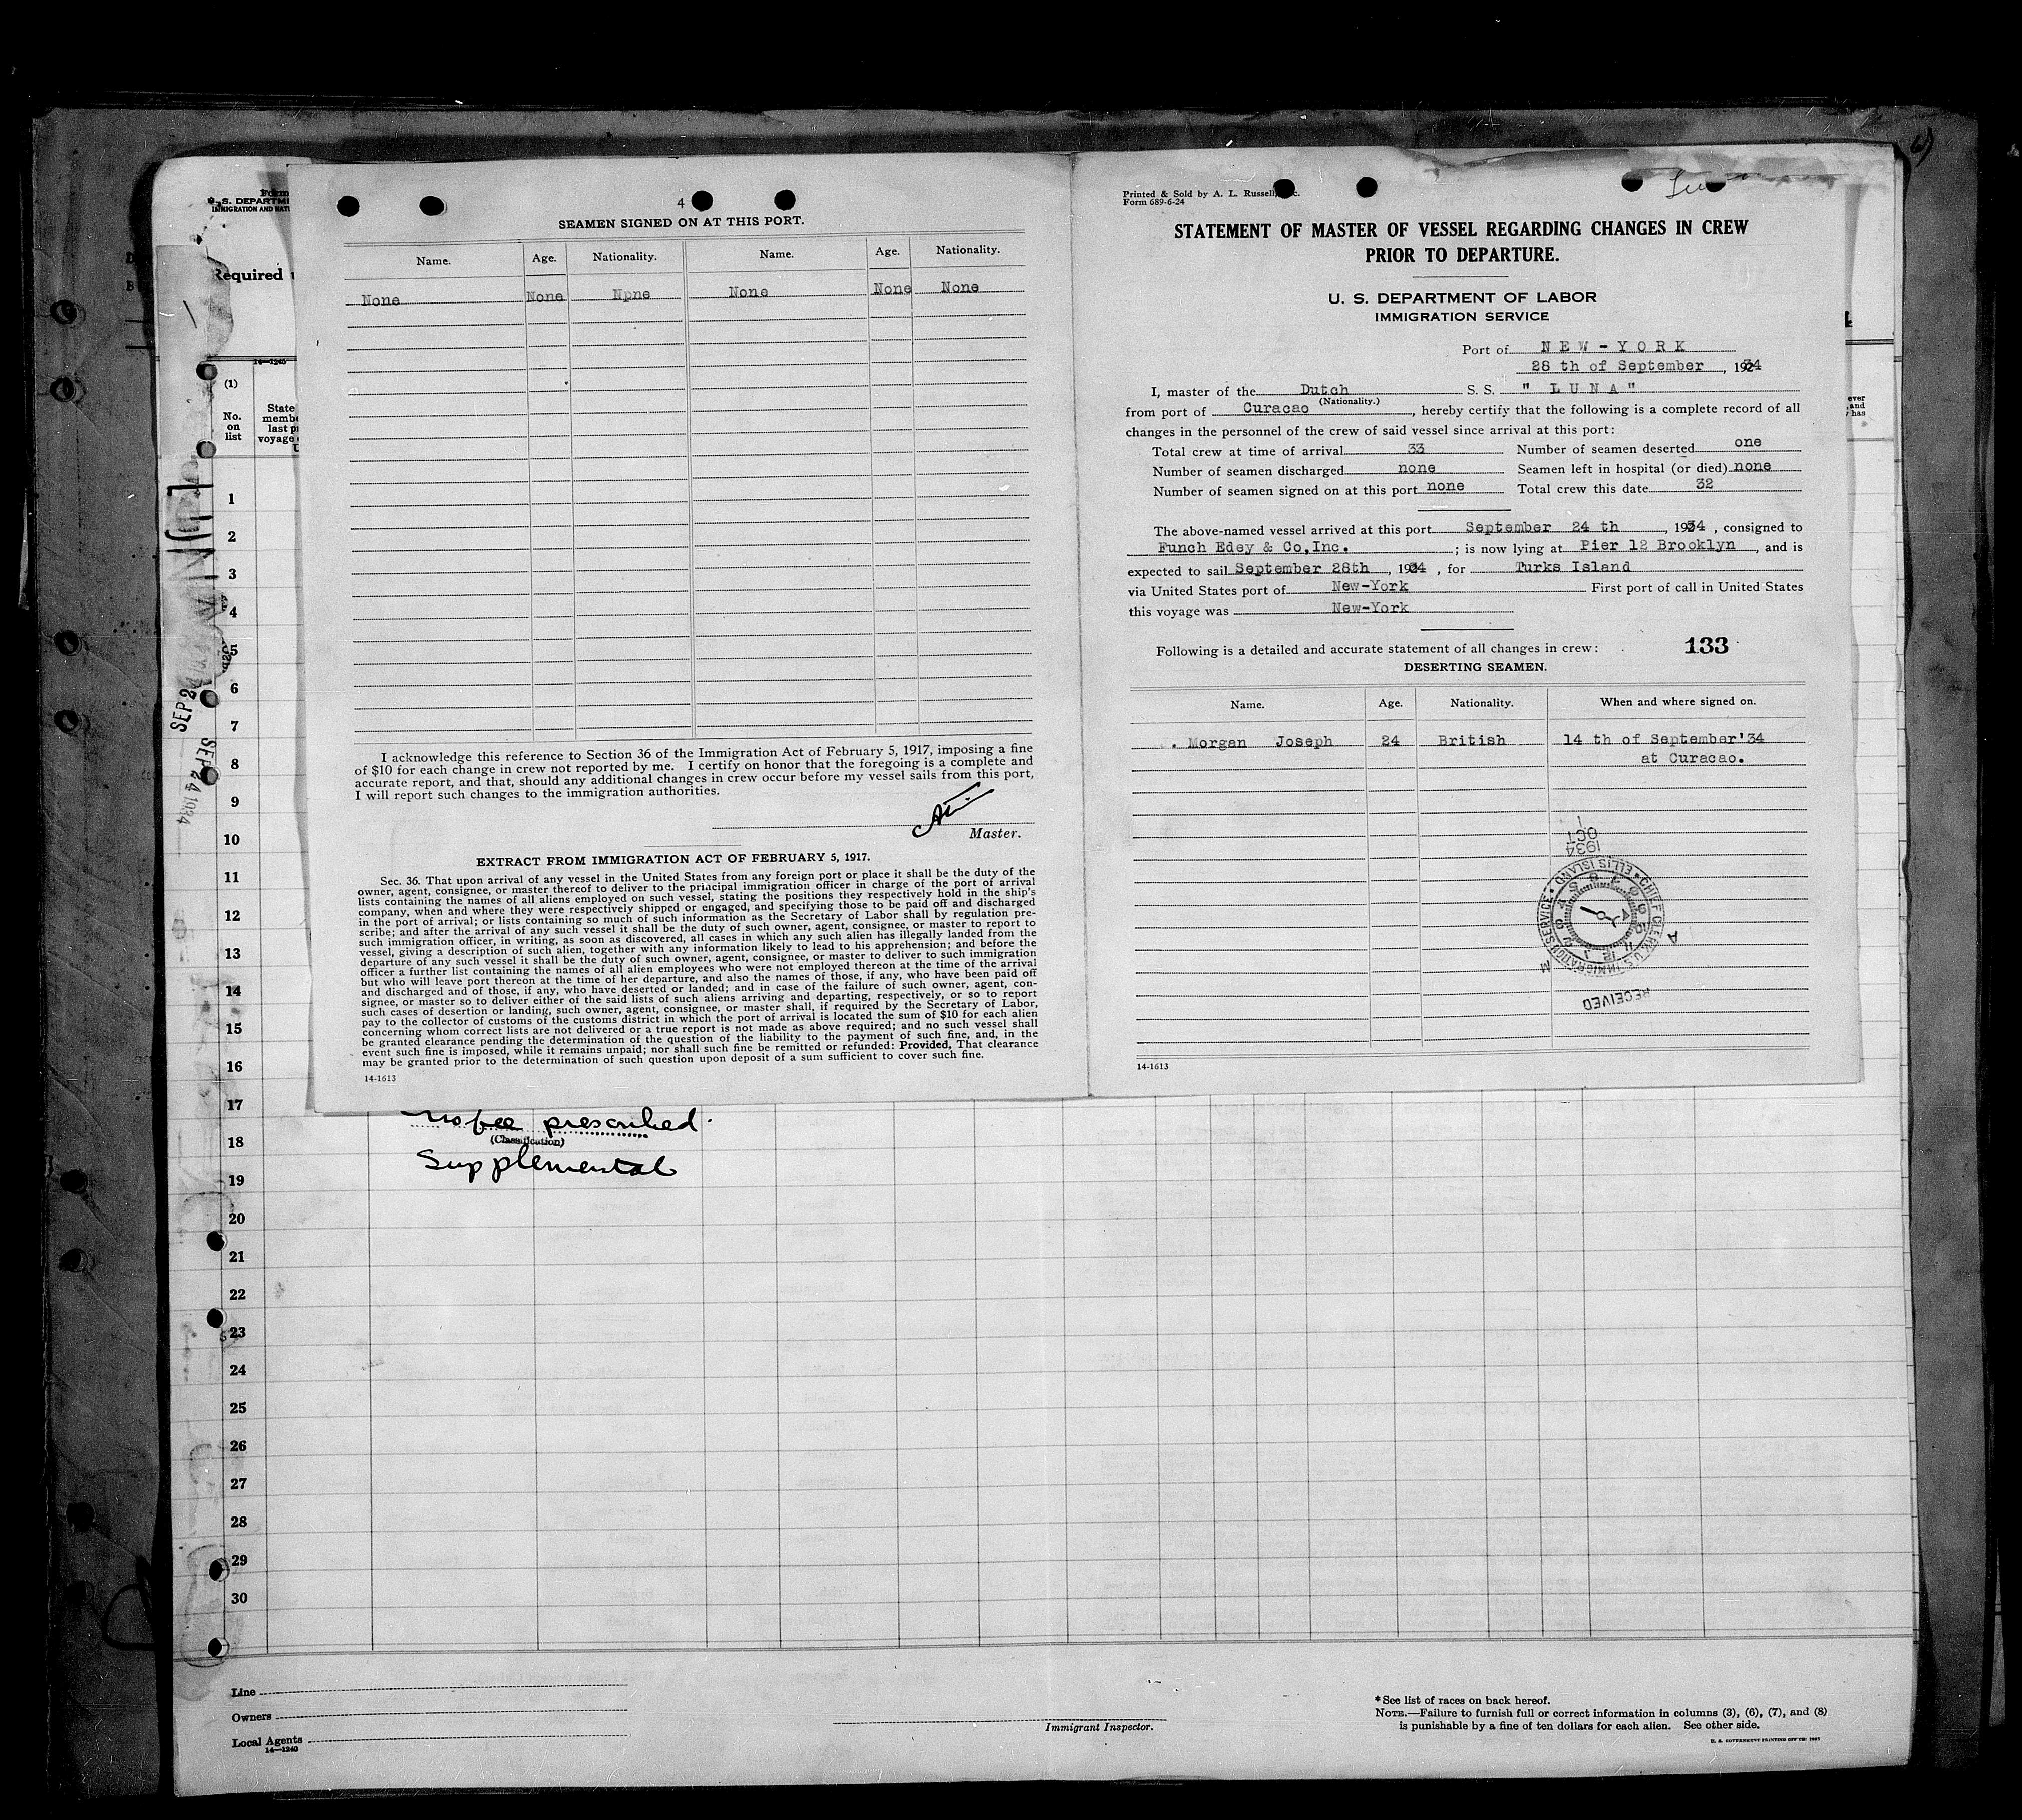 4
SEAMEN SIGNED ON AT THIS PORT.
Name. Age. Nationality. Name. Age. Nationality.
None None Npne None None None
I acknowledge this reference to Section 36 of the Immigration Act of February 5, 1917, imposing a fine
of $10 for each change in crew not reported by me. I certify on honor that the foregoing is a complete and
accurate report, and that, should any additional changes in crew occur before my vessel sails from this port,
I will report such changes to the immigration authorities.
Master.
EXTRACT FROM IMMIGRATION ACT OF FEBRUARY 5, 1917.
Sec. 36. That upon arrival of any vessel in the United States from any foreign port or place it shall be the duty of the
owner, agent, consignee, or master thereof to deliver to the principal immigration officer in charge of the port of arrival
lists containing the names of all aliens employed on such vessel, stating the positions they respectively hold in the ship's
company, when and where they were respectively shipped or engaged, and specifying those to be paid off and discharged
in the port of arrival; or lists containing so much of such information as the Secretary of Labor shall by regulation pre-
scribe; and after the arrival of any such vessel it shall be the duty of such owner, agent, consignee, or master to report to
such immigration officer, in writing, as soon as discovered, all cases in which any such alien has illegally landed from the
vessel, giving a description of such alien, together with any information likely to lead to his apprehension; and before the
departure of any such vessel it shall be the duty of such owner, agent, consignee, or master to deliver to such immigration
officer a further list containing the names of all alien employees who were not employed thereon at the time of the arrival
but who will leave port thereon at the time of her departure, and also the names of those, if any, who have been paid off
and discharged and of those, if any, who have deserted or landed; and in case of the failure of such owner, agent, con-
signee, or master so to deliver either of the said lists of such aliens arriving and departing, respectively, or so to report
such cases of desertion or landing, such owner, agent, consignee, or master shall, if required by the Secretary of Labor,
pay to the collector of customs of the customs district in which the port of arrival is located the sum of $10 for each alien
concerning whom correct lists are not delivered or a true report is not made as above required; and no such vessel shall
be granted clearance pending the determination of the question of the liability to the payment of such fine, and, in the
event such fine is imposed, while it remains unpaid; nor shall such fine be remitted or refunded: Provided, That clearance
may be granted prior to the determination of such question upon deposit of a sum sufficient to cover such fine.
14-1613
Printed & Sold by A. L. Russell,
Form 689-6-24
STATEMENT OF MASTER OF VESSEL REGARDING CHANGES IN CREW
PRIOR TO DEPARTURE.
U. S. DEPARTMENT OF LABOR
IMMIGRATION SERVICE
Port of NEW-YORK
28 th of September, 1934
I, master of the Dutch S. S. "LUNA"
(Nationality.)
from port of Curacao, hereby certify that the following is a complete record of all
changes in the personnel of the crew of said vessel since arrival at this port:
Total crew at time of arrival 33 Number of seamen deserted one
Number of seamen discharged none Seamen left in hospital (or died) none
Number of seamen signed on at this port none Total crew this date 32
The above-named vessel arrived at this port September 24 th, 1934, consigned to
Funch Edey & Co,Inc. ; is now lying at Pier 12 Brooklyn, and is
expected to sail September 28th, 1934, for Turks Island
via United States port of New-York First port of call in United States
this voyage was New-York
Following is a detailed and accurate statement of all changes in crew: 133
DESERTING SEAMEN.
Name. Age. Nationality. When and where signed on.
Morgan Joseph 24 British 14 th of September'34
at Curacao.
1934
OCT
1
CHIEF CLERK U.S. IMMIGRATION SERVICE ELLIS ISLAND
RECEIVED
14-1613
Form
U. S. DEPARTM
IMMIGRATION AND NATU
Required
14-1240
(1)
No.
on
list
State
membe
last p
voyage
ever
and
has
SEP 2
SEP 24 1934
1
2
3
4
5
6
7
8
9
10
11
12
13
14
15
16
17
18
19
20
21
22
23
24
25
26
27
28
29
30
no fee prescribed.
(Classification)
Supplemental
Line
Owners
Local Agents
14-1240
Immigrant Inspector.
*See list of races on back hereof.
NOTE.—Failure to furnish full or correct information in columns (3), (6), (7), and (8)
is punishable by a fine of ten dollars for each alien. See other side.
U. S. GOVERNMENT PRINTING OFFICE: